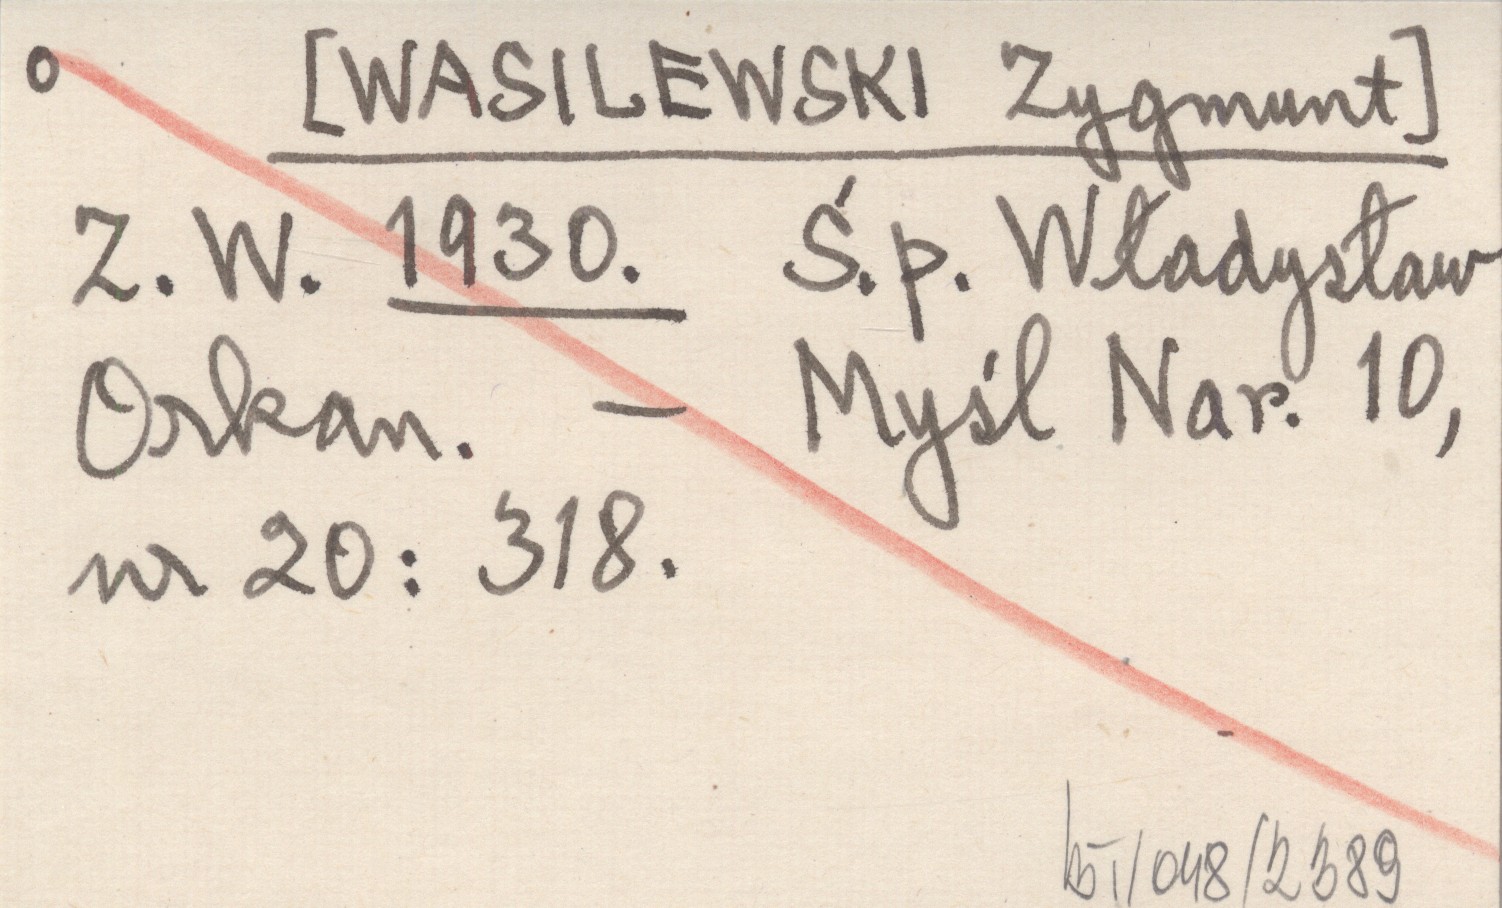 o [WASILEWSKI Zygmunt]
Z. W. 1930. Ś.p. Władysław
Orkan. – Myśl Nar. 10,
nr 20: 318.
/048/2389